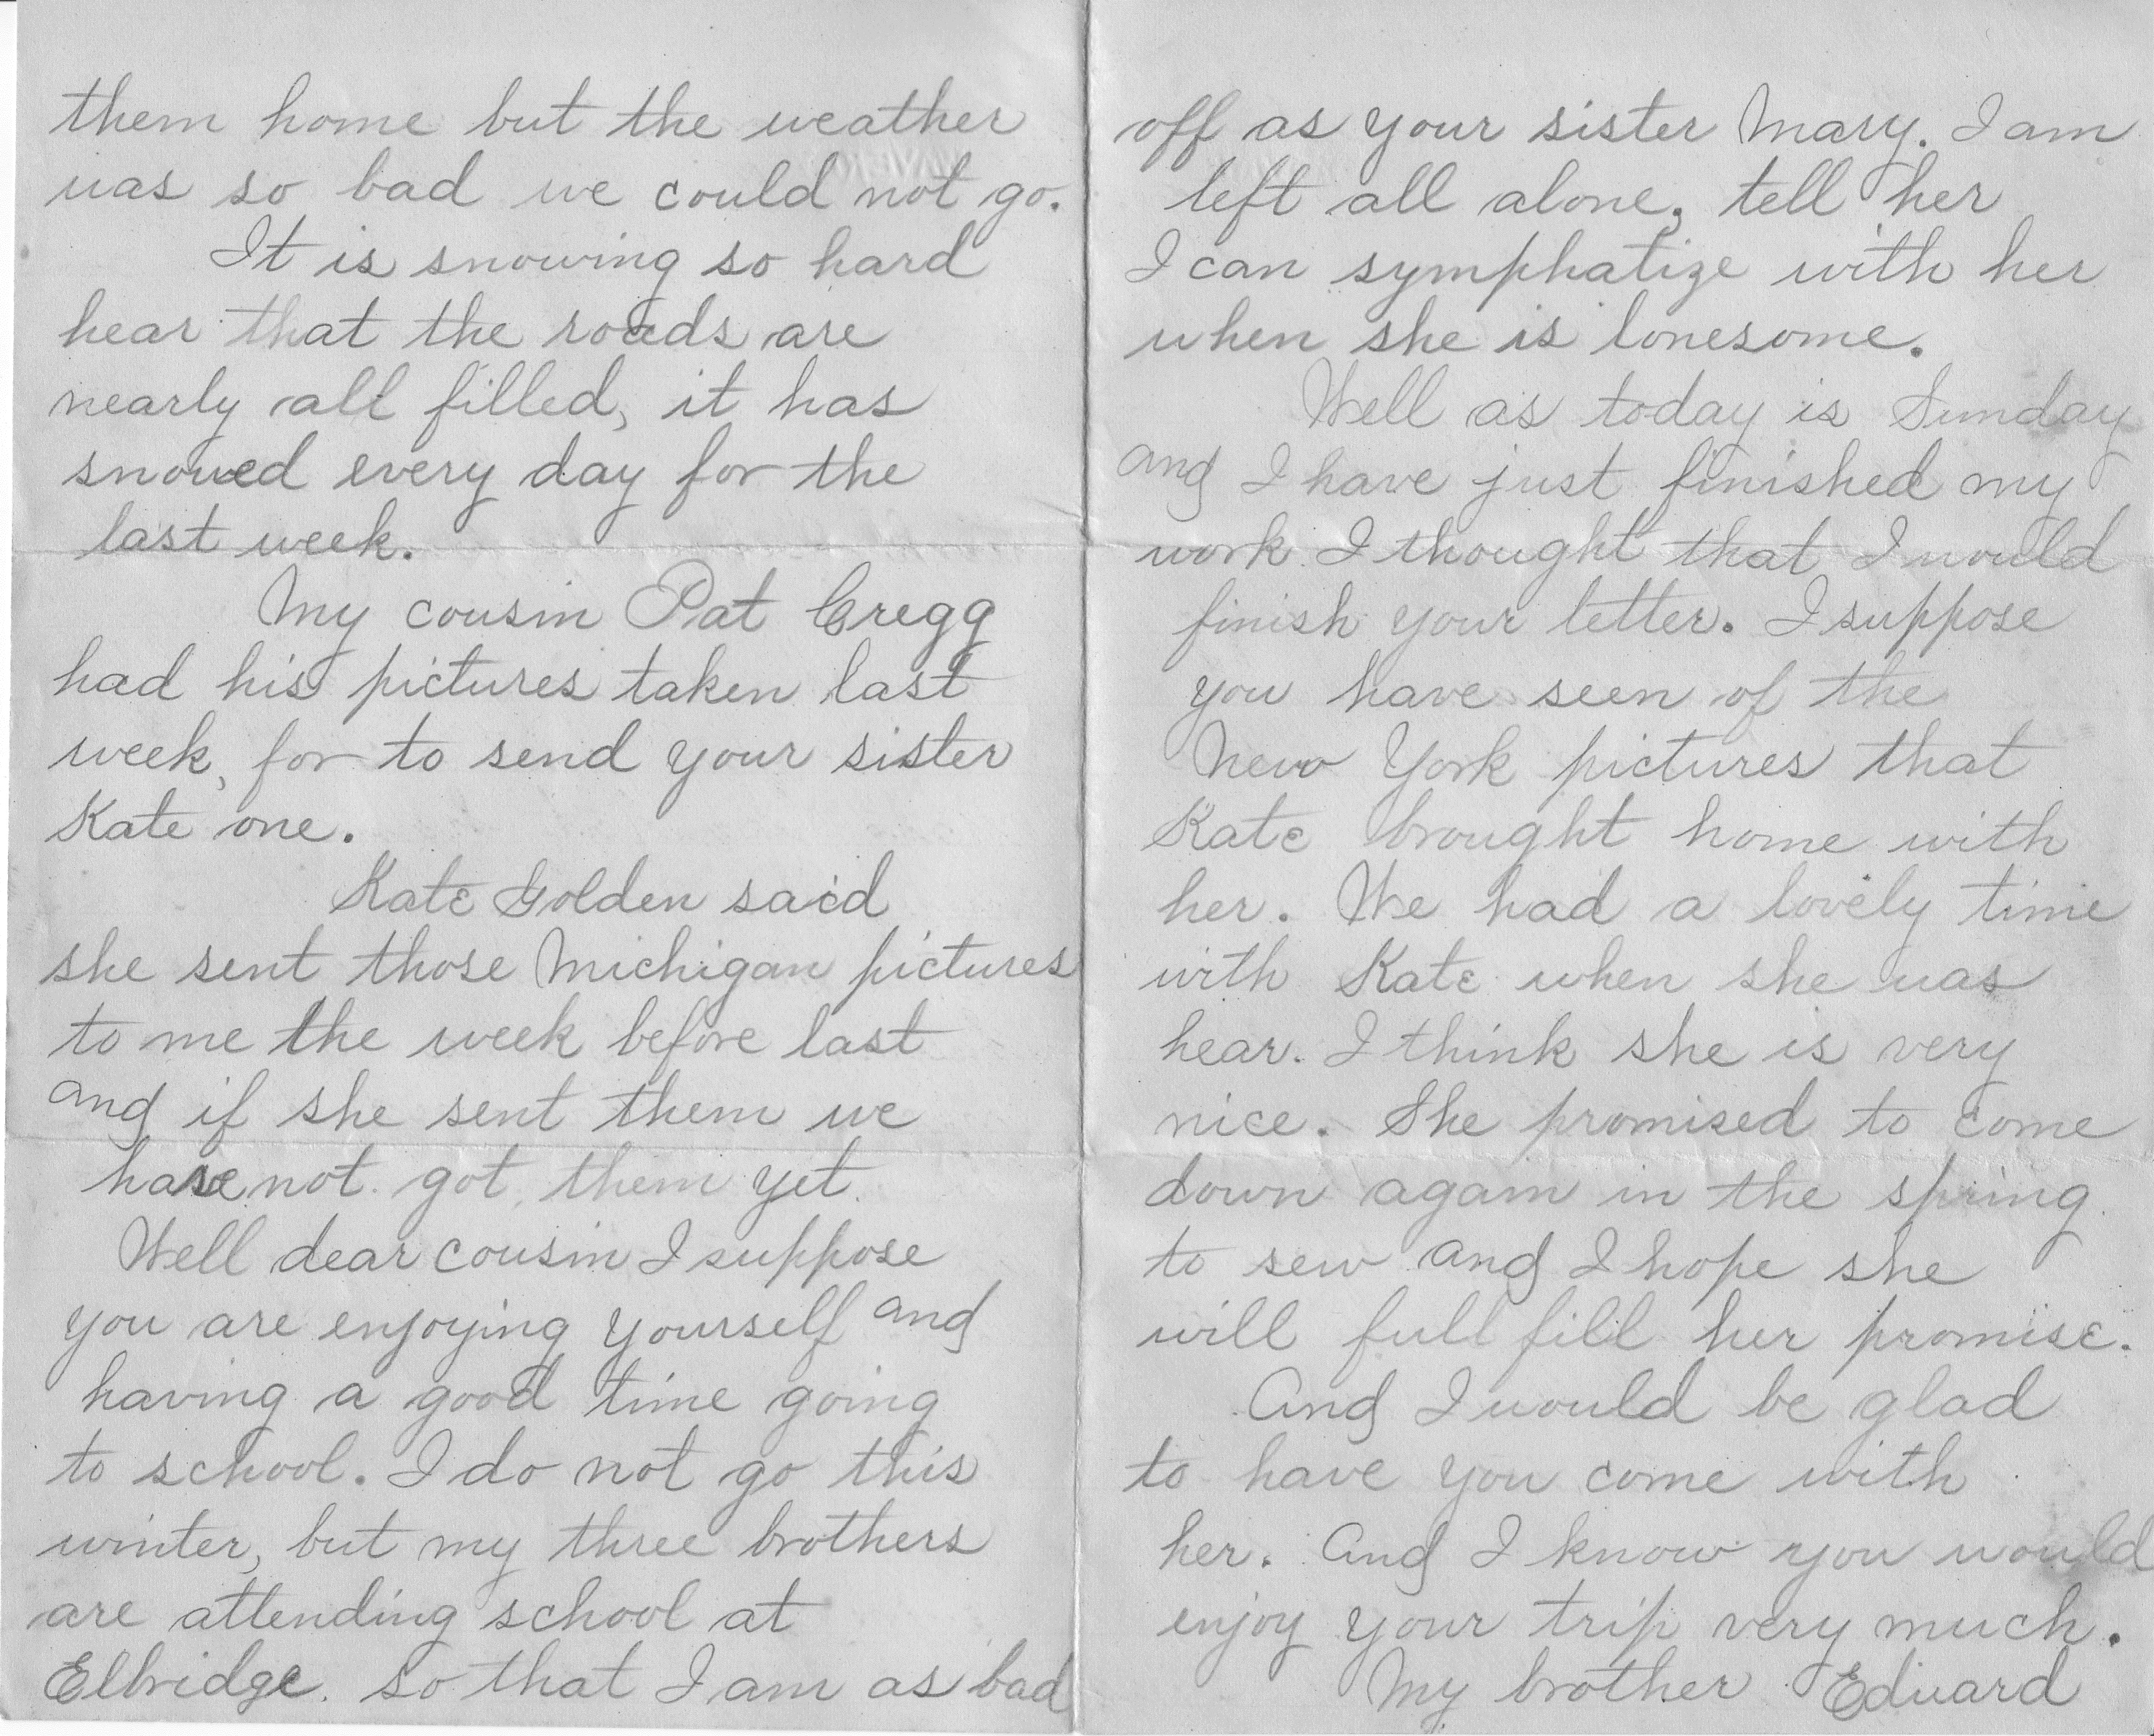 them home but the weather
was so bad we could not go.
It is snowing so hard
hear that the roads are
nearly all filled, it has
snowed every day for the
last week.
My cousin Pat Cregg
had his pictures taken last
week, for to send your sister
Kate one.
Kate Golden said
she sent those Michigan pictures
to me the week before last
and if she sent them we
have not got them yet.
Well dear cousin I suppose
you are enjoying yourself and
having a good time going
to school. I do not go this
winter, but my three brothers
are attending school at
Elbridge. so that I am as bad
off as your sister Mary. I am
left all alone, tell her
I can symphatize with her
when she is lonesome.
Well as today is Sunday
and I have just finished my
work I thought that I would
finish your letter. I suppose
you have seen of the
New York pictures that
Kate brought home with
her. We had a lovely time
with Kate when she was
hear. I think she is very
nice. She promised to come
down again in the spring
to sew and I hope she
will full fill her promise.
And I would be glad
to have you come with
her. And I know you would
enjoy your trip very much.
My brother Edward